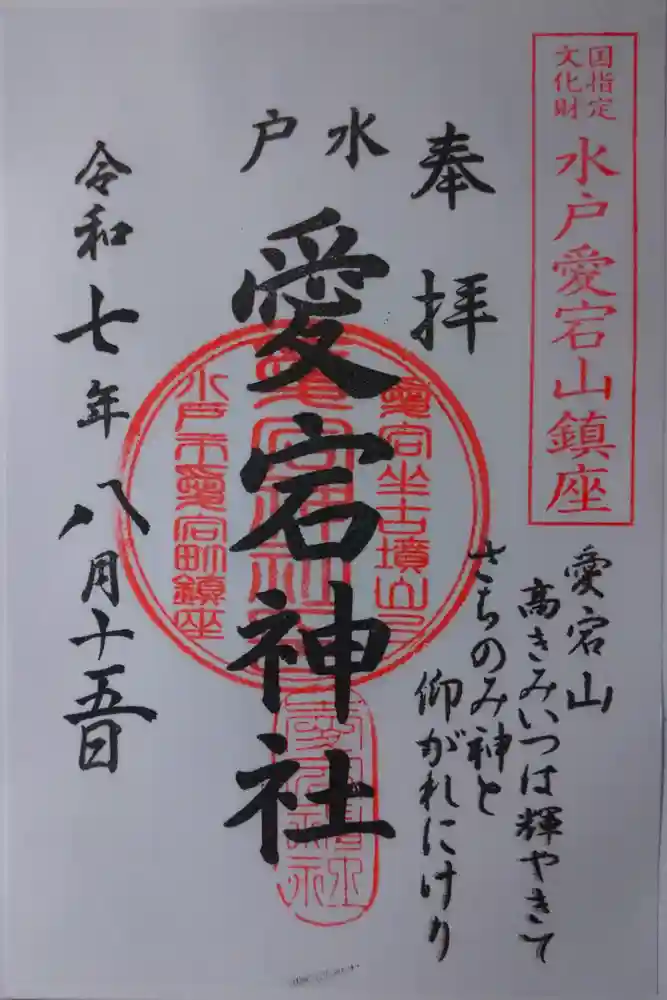 国指定
文化財
水戸愛宕山鎮座
奉拝
水戸
愛宕神社
令和七年八月十五日
愛宕山
高きみいつは輝やきて
さちのみ神と
仰がれにけり
水戸市愛宕町鎮座